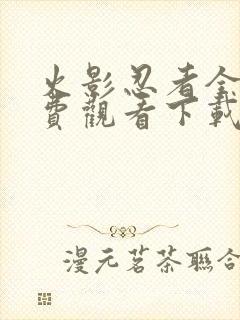 火影忍者全
費觀看下載
漫元茗茶聯合